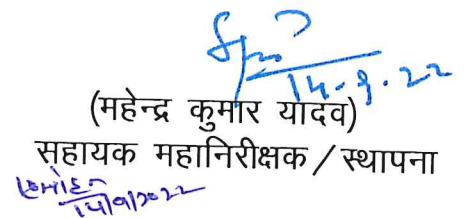 14-9-22
(महेन्द्र कुमार यादव)
सहायक महानिरीक्षक / स्थापना
14/9/2022